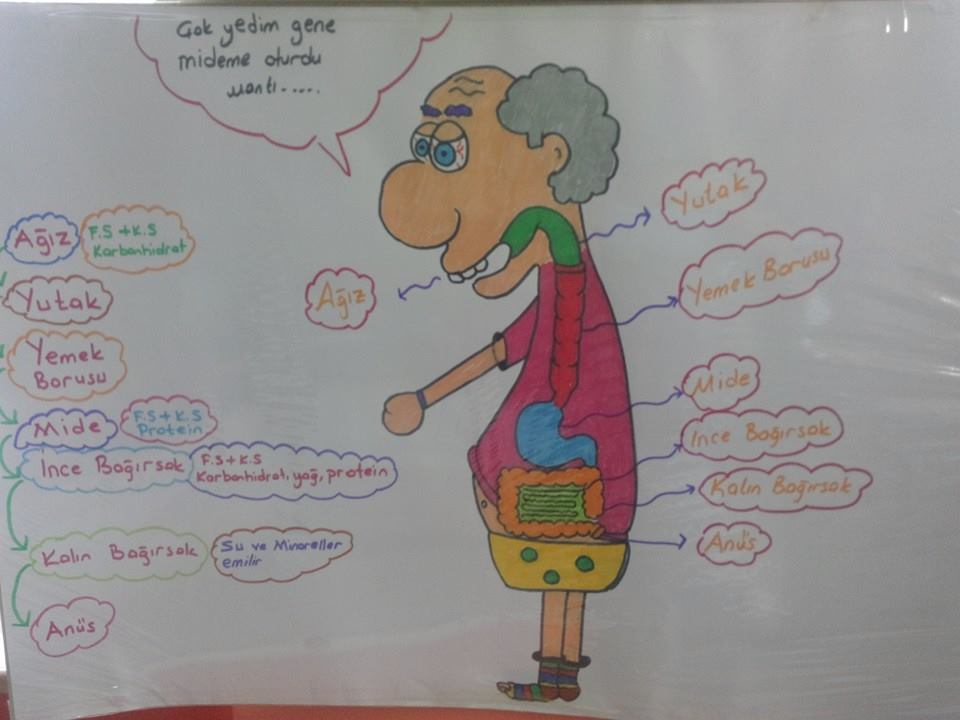 Çok yedim gene
mideme oturdu
mantı.....
Ağız
F.S+K.S
Karbonhidrat
Yutak
Yemek
Borusu
Mide
F.S+K.S
Protein
İnce Bağırsak
F.S+K.S
Karbonhidrat, yağ, protein
Kalın Bağırsak
Su ve Minareller
emilir
Anüs
Ağız
Yutak
Yemek Borusu
Mide
İnce Bağırsak
Kalın Bağırsak
Anüs